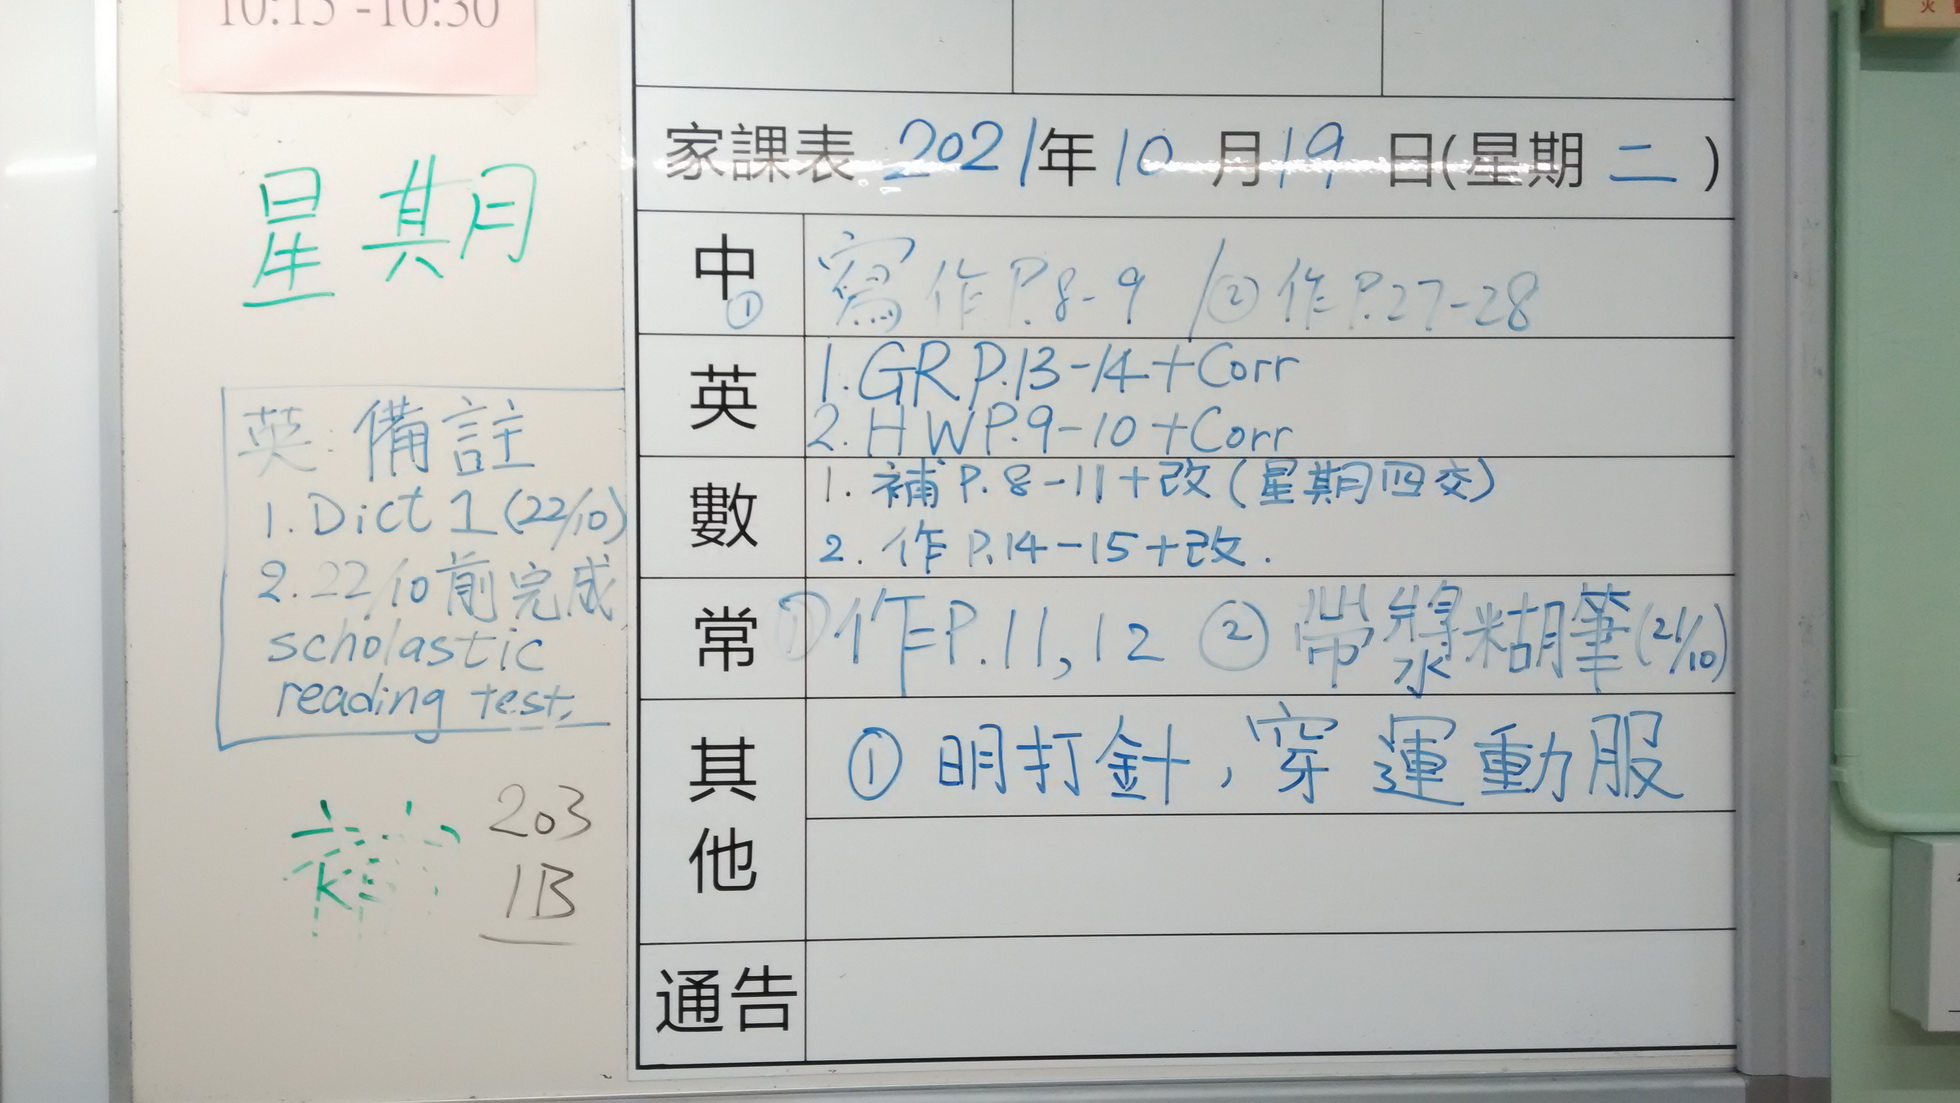 10:15 -10:30
星期
英:備註
1. Dict 1 (22/10)
2. 22/10前完成
scholastic
reading test.
203
1B
家課表 2021年10月19日(星期二)
中 ① 寫作P.8-9 / ② 作P.27-28
英
1. GR P.13-14+Corr
2. HW P.9-10+Corr
數
1. 補P.8-11+改(星期四交)
2. 作P.14-15+改.
常 ① 作P.11,12 ② 帶漿糊筆(21/10)
其他
① 明打針,穿運動服
通告
火